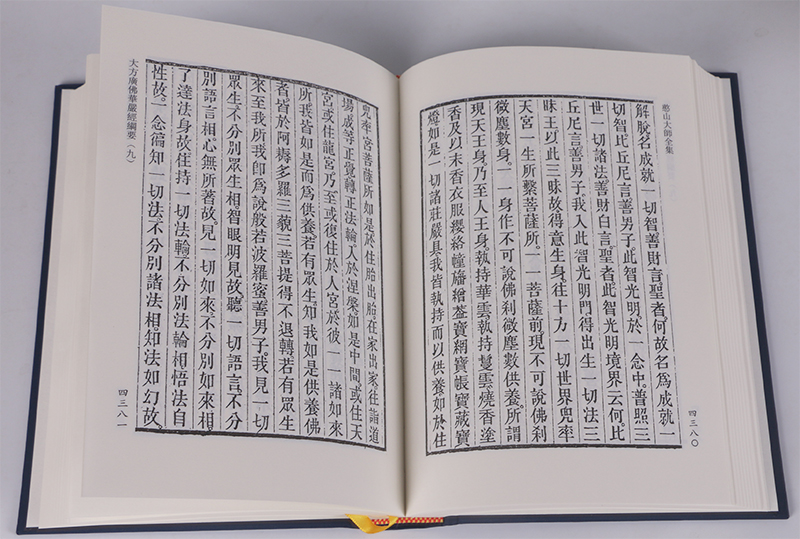 憨山大師全集
解脫名成就一切智善財言聖者何故名爲成就一
切智比丘尼言善男子此智光明於一念中普照三
世一切諸法善財白言聖者此智光明境界云何比
丘尼言善男子我入此智光明門得出生一切法三
昧王以此三昧故得意生身往十方一切世界兜率
天宮一生所繫菩薩所一一菩薩前現不可說佛刹
微塵數身一一身作不可說佛刹微塵數供養所謂
現天王身乃至人王身執持華雲執持鬘雲燒香塗
香及以末香衣服瓔珞幢旛繒蓋寶網寶帳寶藏寶
燈如是一切諸莊嚴具我皆執持而以供養如於住
四三八〇
兜率宮菩薩所如是於住胎出胎在家出家往詣道
場成等正覺轉正法輪入於涅槃如是中間或住天
宮或住龍宮乃至或復住於人宮於彼一一諸如來
所我皆如是而爲供養若有眾生知我如是供養佛
者皆於阿耨多羅三藐三菩提得不退轉若有眾生
來至我所我卽爲說般若波羅蜜善男子我見一切
眾生不分別眾生相智眼明見故聽一切語言不分
別語言相心無所著故見一切如來不分別如來相
了達法身故住持一切法輪不分別法輪相悟法自
性故一念徧知一切法不分別諸法相知法如幻故
大方廣佛華嚴經綱要（九）
四三八一